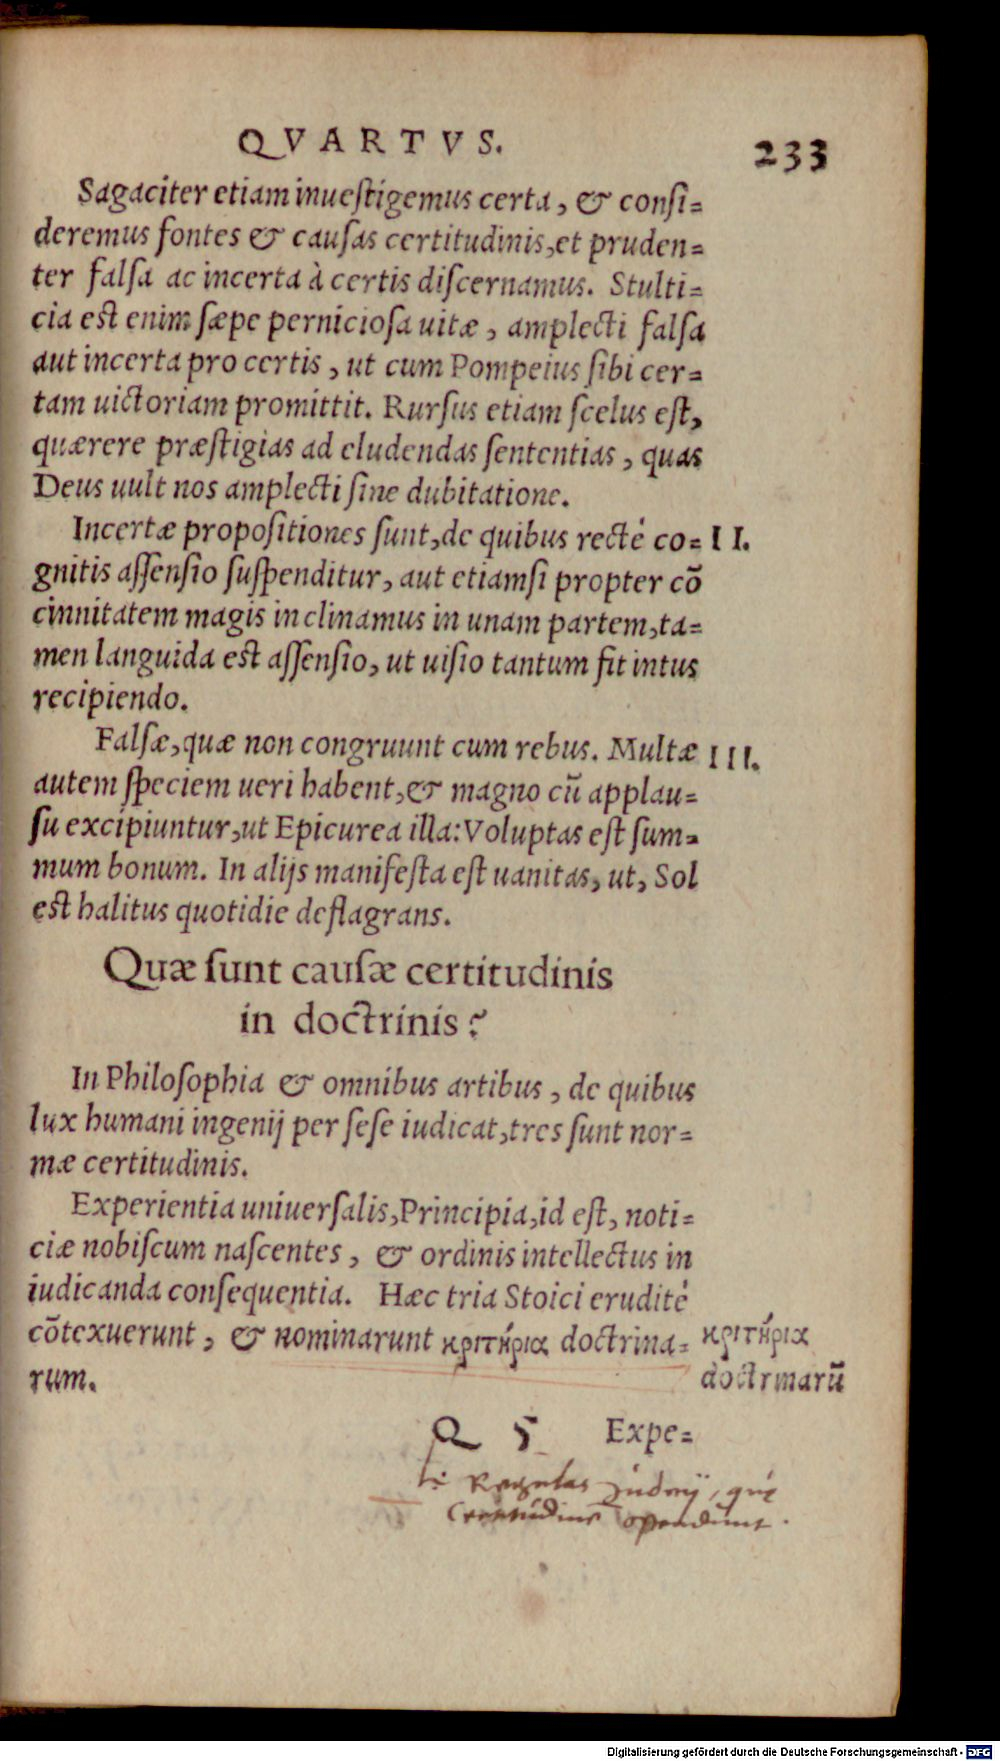 QVARTVS. 233
Sagaciter etiam inueſtigemus certa, & conſi-
deremus fontes & cauſas certitudinis, et pruden-
ter falſa ac incerta à certis diſcernamus. Stulti-
cia est enim ſæpe pernicioſa uitæ, amplecti falſa
aut incerta pro certis, ut cum Pompeius ſibi cer-
tam uictoriam promittit. Rurſus etiam ſcelus eſt,
quærere præſtigias ad eludendas ſententias, quas
Deus uult nos amplecti ſine dubitatione.
Incertæ propoſitiones ſunt, de quibus recté co- II.
gnitis aſſenſio ſuſpenditur, aut etiamſi propter cõ
cinnitatem magis inclinamus in unam partem, ta-
men languida est aſſenſio, ut uiſio tantum fit intus
recipiendo.
Falſæ, quæ non congruunt cum rebus. Multæ III.
autem ſpeciem ueri habent, & magno cũ applau-
ſu excipiuntur, ut Epicurea illa: Voluptas eſt ſum-
mum bonum. In alijs manifeſta eſt uanitas, ut, Sol
est halitus quotidie deflagrans.
Quæ ſunt cauſæ certitudinis
in doctrinis?
In Philoſophia & omnibus artibus, de quibus
lux humani ingenij per ſeſe iudicat, tres ſunt nor-
mæ certitudinis.
Experientia uniuerſalis, Principia, id eſt, noti-
ciæ nobiſcum naſcentes, & ordinis intellectus in
iudicanda conſequentia. Hæc tria Stoici erudité
cõtexuerunt, & nominarunt κριτήρια doctrina-
rum.
κριτήρια
doctrinarũ
Q 5 Expe-
Regulas